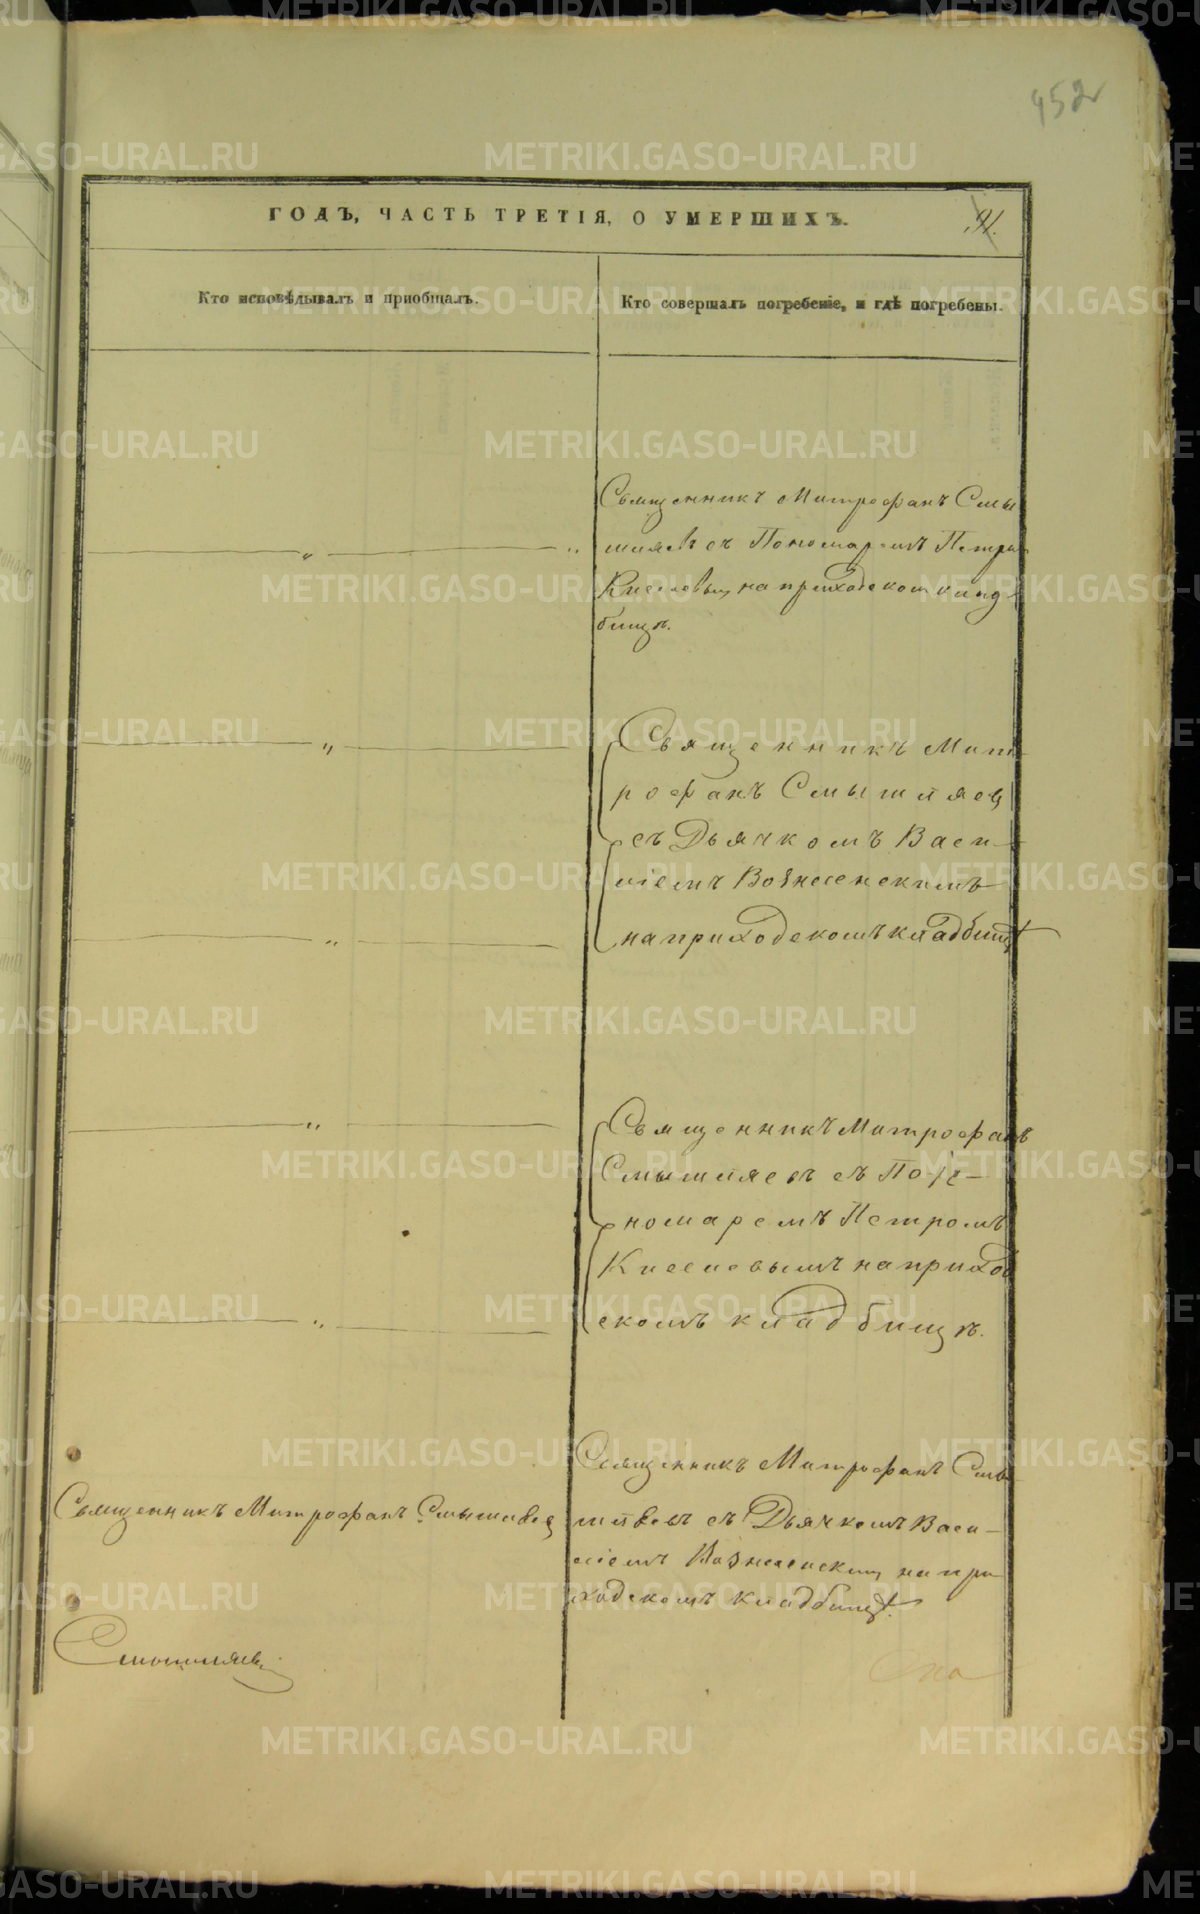 452
ГОДЪ, ЧАСТЬ ТРЕТІЯ, О УМЕРШИХЪ.
Кто исповѣдывалъ и пріобщалъ.
Кто совершалъ погребеніе, и гдѣ погребены.
Священникъ Митрофанъ Смы
шляевъ съ Пономаремъ Петром
Киселевым на приходском клад
бищѣ.
Священникъ Мит
рофанъ Смышляев
съ Дьячкомъ Васи-
ліемъ Вознесенскимъ
на приходскомъ кладбищѣ
Священникъ Митрофанъ
Смышляевъ съ По-
номаремъ Петромъ
Киселевымъ на приход
скомъ кладбищѣ.
Священникъ Митрофанъ Смышляев
Священникъ Митрофанъ Смы
шляевъ съ Дьячкомъ Васи-
ліемъ Вознесенским на при
ходскомъ кладбищѣ.
Смышляевъ
METRIKI.GASO-URAL.RU